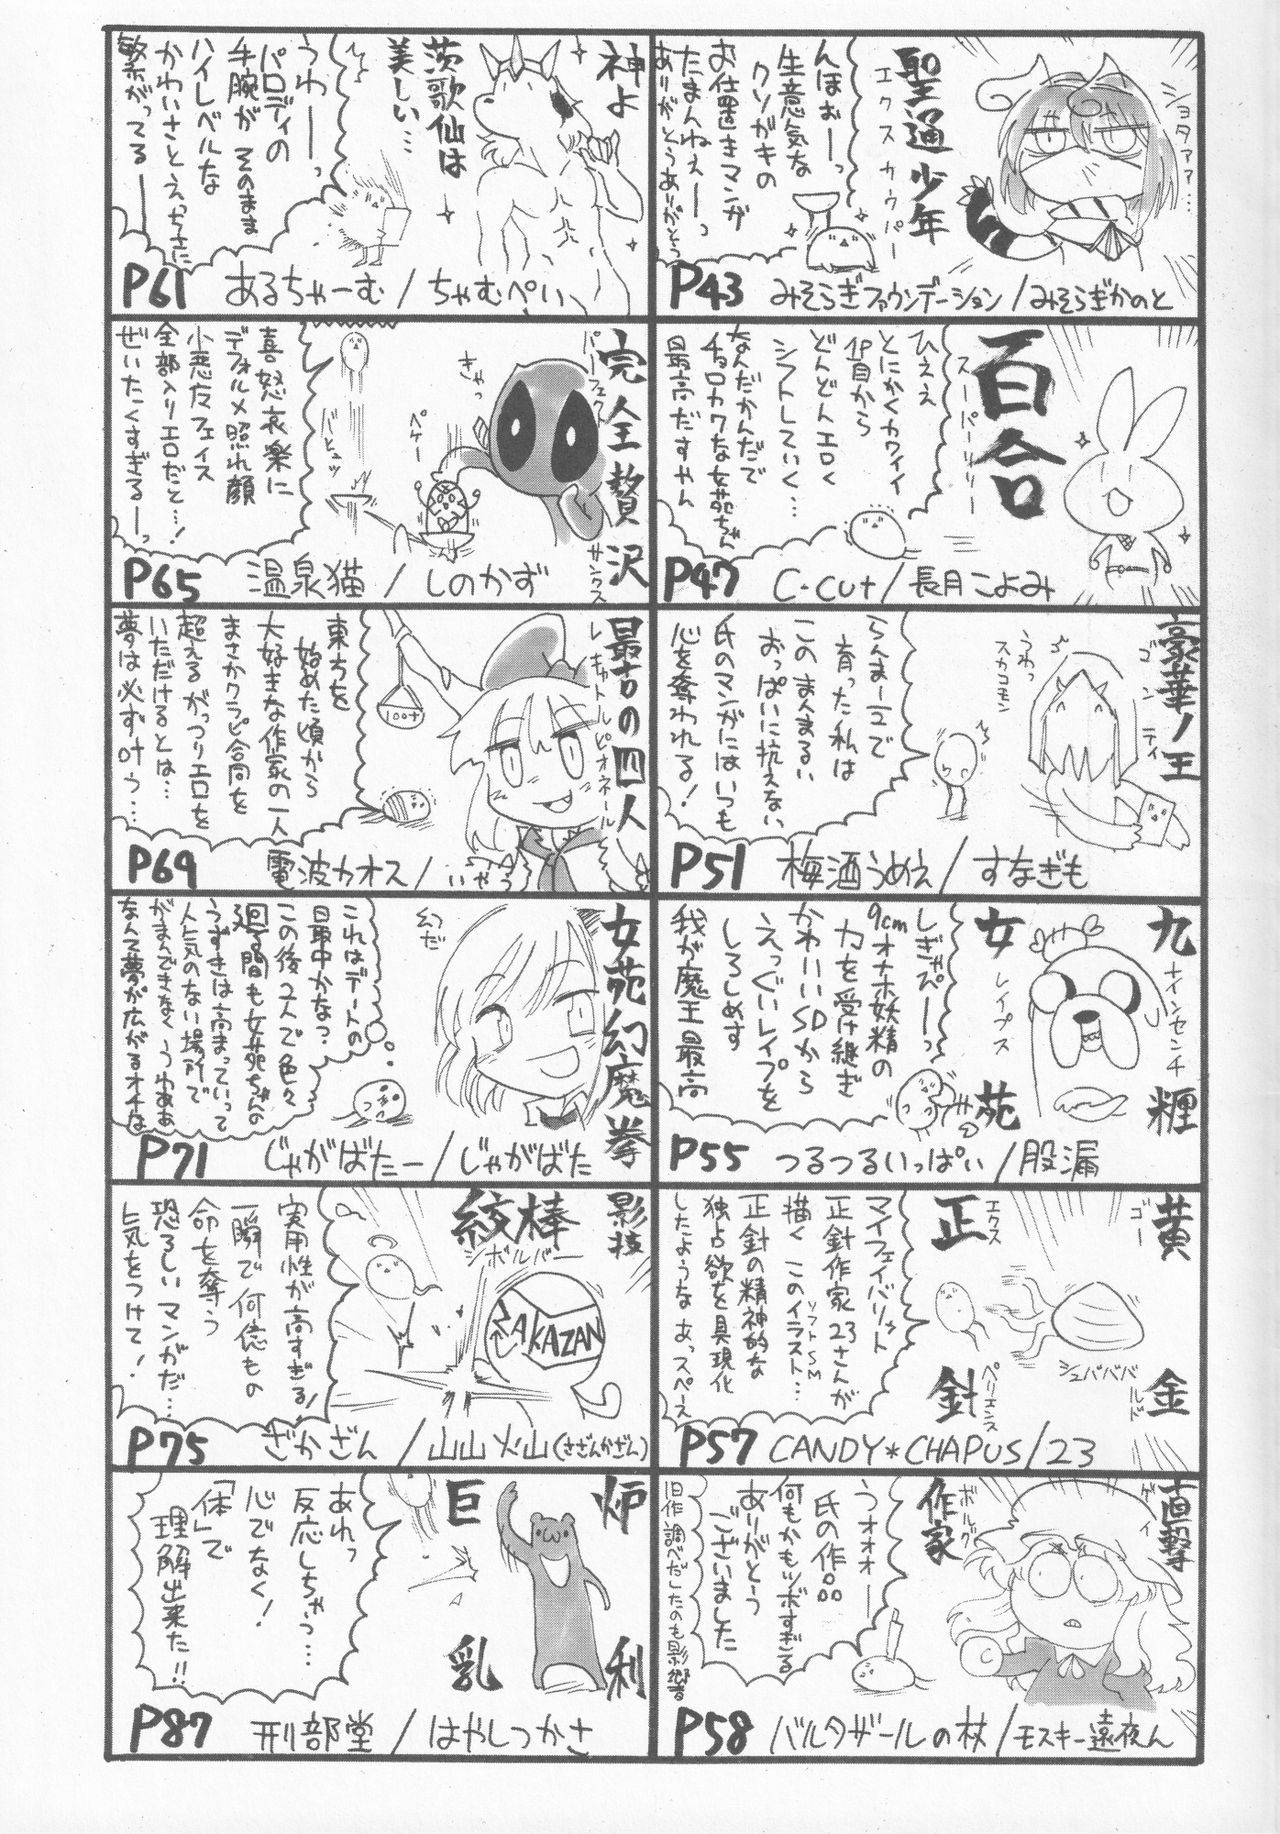 聖通少年
エクスカウパー
ショタァァ…
んほぉーっ
生意気な
クソガキの
お仕置きマンガ
たまんねぇーっ
ありがとうありがとう
P43 みそらぎファウンデーション/みそらぎかのと
百合
スーパーリリー
ひええ
とにかくカワイイ
1P目から
どんどんエロく
シフトしていく…
なんだかんだで
チョロカワな女苑ちゃん
最高だすやん
P47 C・Cut/長月こよみ
豪華ノ王
ゴンティ
うわっ
スカコモン
らんまー1/2で
育った私は
このまんまるい
おっぱいに抗えない
氏のマンガにはいつも
心を奪われる!
P51 梅酒うめぇ/すなぎも
九糎
ナインセンチ
女苑
レイプス
しぎゃぴーっ
9cmオナホ妖精の
力を受け継ぎ
かわいいSDから
えっぐいレイプを
しろしめす
我が魔王最高
P55 つるつるいっぱい/股漏
黄金
ゴールド
正針
エクスペリエンス
シュババババ
マイフェイバリット
正針作家23さんが
描くこのイラスト…
ソフトSM
正針の精神的な
独占欲を具現化
したようなあっスペース
P57 CANDY*CHAPUS/23
直撃
作家
ボルグ
うオオオー
氏の作品
何もかもツボすぎる
ありがとう
ございました
旧作調べだしたのも影響
P58 バルタザールの杖/モスキー遠夜ん
神よ
茨歌仙は
美しい…
うわーっ
パロディの
手腕がそのまま
ハイレベルな
かわいさとえっちさに
繋がってるーー
P61 あるちゃーむ/ちゃむぺい
完全贅沢
パーフェクサンクス
きゃっ
ペケー
ベとュッ
喜怒哀楽に
デフォルメ照れ顔
小悪友フェイス
全部入りエロだと…!
ぜいたくすぎるーっ
P65 温泉猫/しのかず
最古の四人
レキュトルピオネール
100t
東方を
始めた頃から
大好きな作家の一人
まさかクラピ合同を
超えるがっつりエロを
いただけるとは…
夢は必ず叶う…
P69 電波カオス/いやう
女苑幻魔拳
幻だ
これはデートの
最中かな?
この後2人で色々
廻る間も女苑ちゃんの
うずきは高まっていって
人気のない場所で
がまんできなくうわああ
なんて夢が広がるオチは
P71 じゃがばたー/じゃがばた
影技
紋棒
シボルバー
ZAKAZAN
実用性が高すぎる!
一瞬で何億もの
命を奪う
恐ろしいマンガだ…
気をつけて!
P75 ざかざん/山山火山(さざんかざん)
炉利
巨乳
あれっ
反応しちゃう…
心でなく!
「体」で
理解出来た!!
P87 刑部堂/はやしつかさ